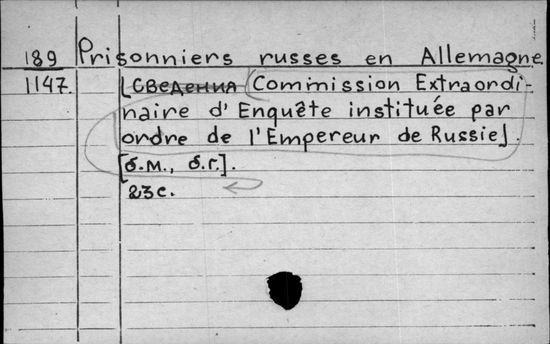 189 Prisonniers russes en Allemagne
1147. [сведения (Commission Extraordi-
naire d'Enquête instituée par
ordre de l'Empereur de Russie].
[б.м., б.г.].
23с.